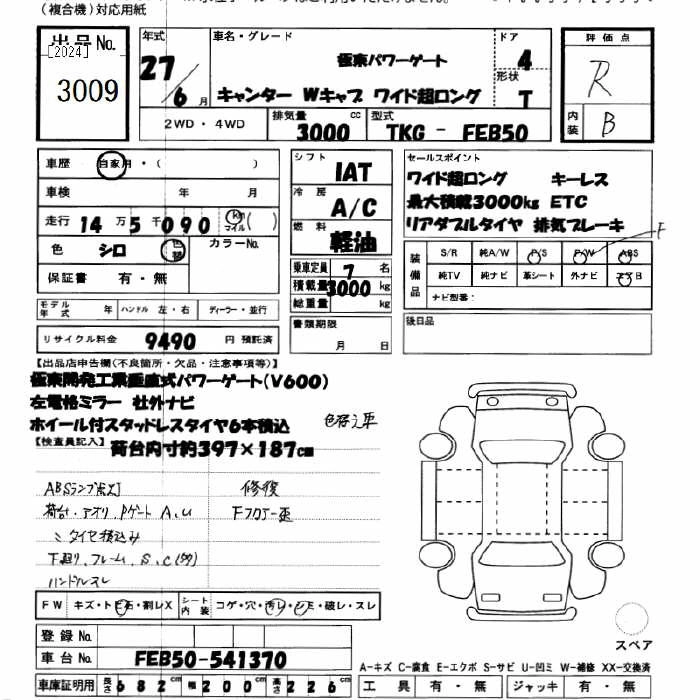 (複合機)対応用紙
出品No. [2024] 3009
年式 27/6月
車名・グレード 極東パワーゲート
キャンター Wキャブ ワイド超ロング
ドア 4
形状 T
評価点 R
内装 B
2WD・4WD
排気量 3000 cc
型式 TKG - FEB50
車歴 自家用・( )
車検 年 月
走行 14万5千090 km マイル ( )
色 シロ 色替 カラーNo.
保証書 有・無
シフト IAT
冷房 A/C
燃料 軽油
乗車定員 7 名
積載量 3000 kg
総重量 kg
セールスポイント
ワイド超ロング キーレス
最大積載3000kg ETC
リアダブルタイヤ 排気ブレーキ
装備品 S/R 純A/W P/S P/W ABS F
純TV 純ナビ 革シート 外ナビ エアB
ナビ型番:
モデル年式 年 ハンドル 左・右 ディーラー・並行
リサイクル料金 9490 円 預託済
書類期限 月 日
後日品
【出品店申告欄(不良箇所・欠品・注意事項等)】
極東開発工業垂直式パワーゲート(V600)
左電格ミラー 社外ナビ
ホイール付スタッドレスタイヤ6本積込
色替え車
【検査員記入】 荷台内寸約397×187cm
ABSランプ点灯 修復
荷台、アオリ、Pゲート A、U Fフロアー歪
〃 タイヤ積込み
下廻り、フレーム、S、C
ハンドルスレ
FW キズ・トビ石・割レX シート内装 コゲ・穴・汚レ・シミ・破レ・スレ
登録No.
車台No. FEB50-541370
車庫証明用 長さ 682cm 幅 200cm 高さ 226cm
スペア
A-キズ C-腐食 E-エクボ S-サビ U-凹ミ W-補修 XX-交換済
工具 有・無 ジャッキ 有・無